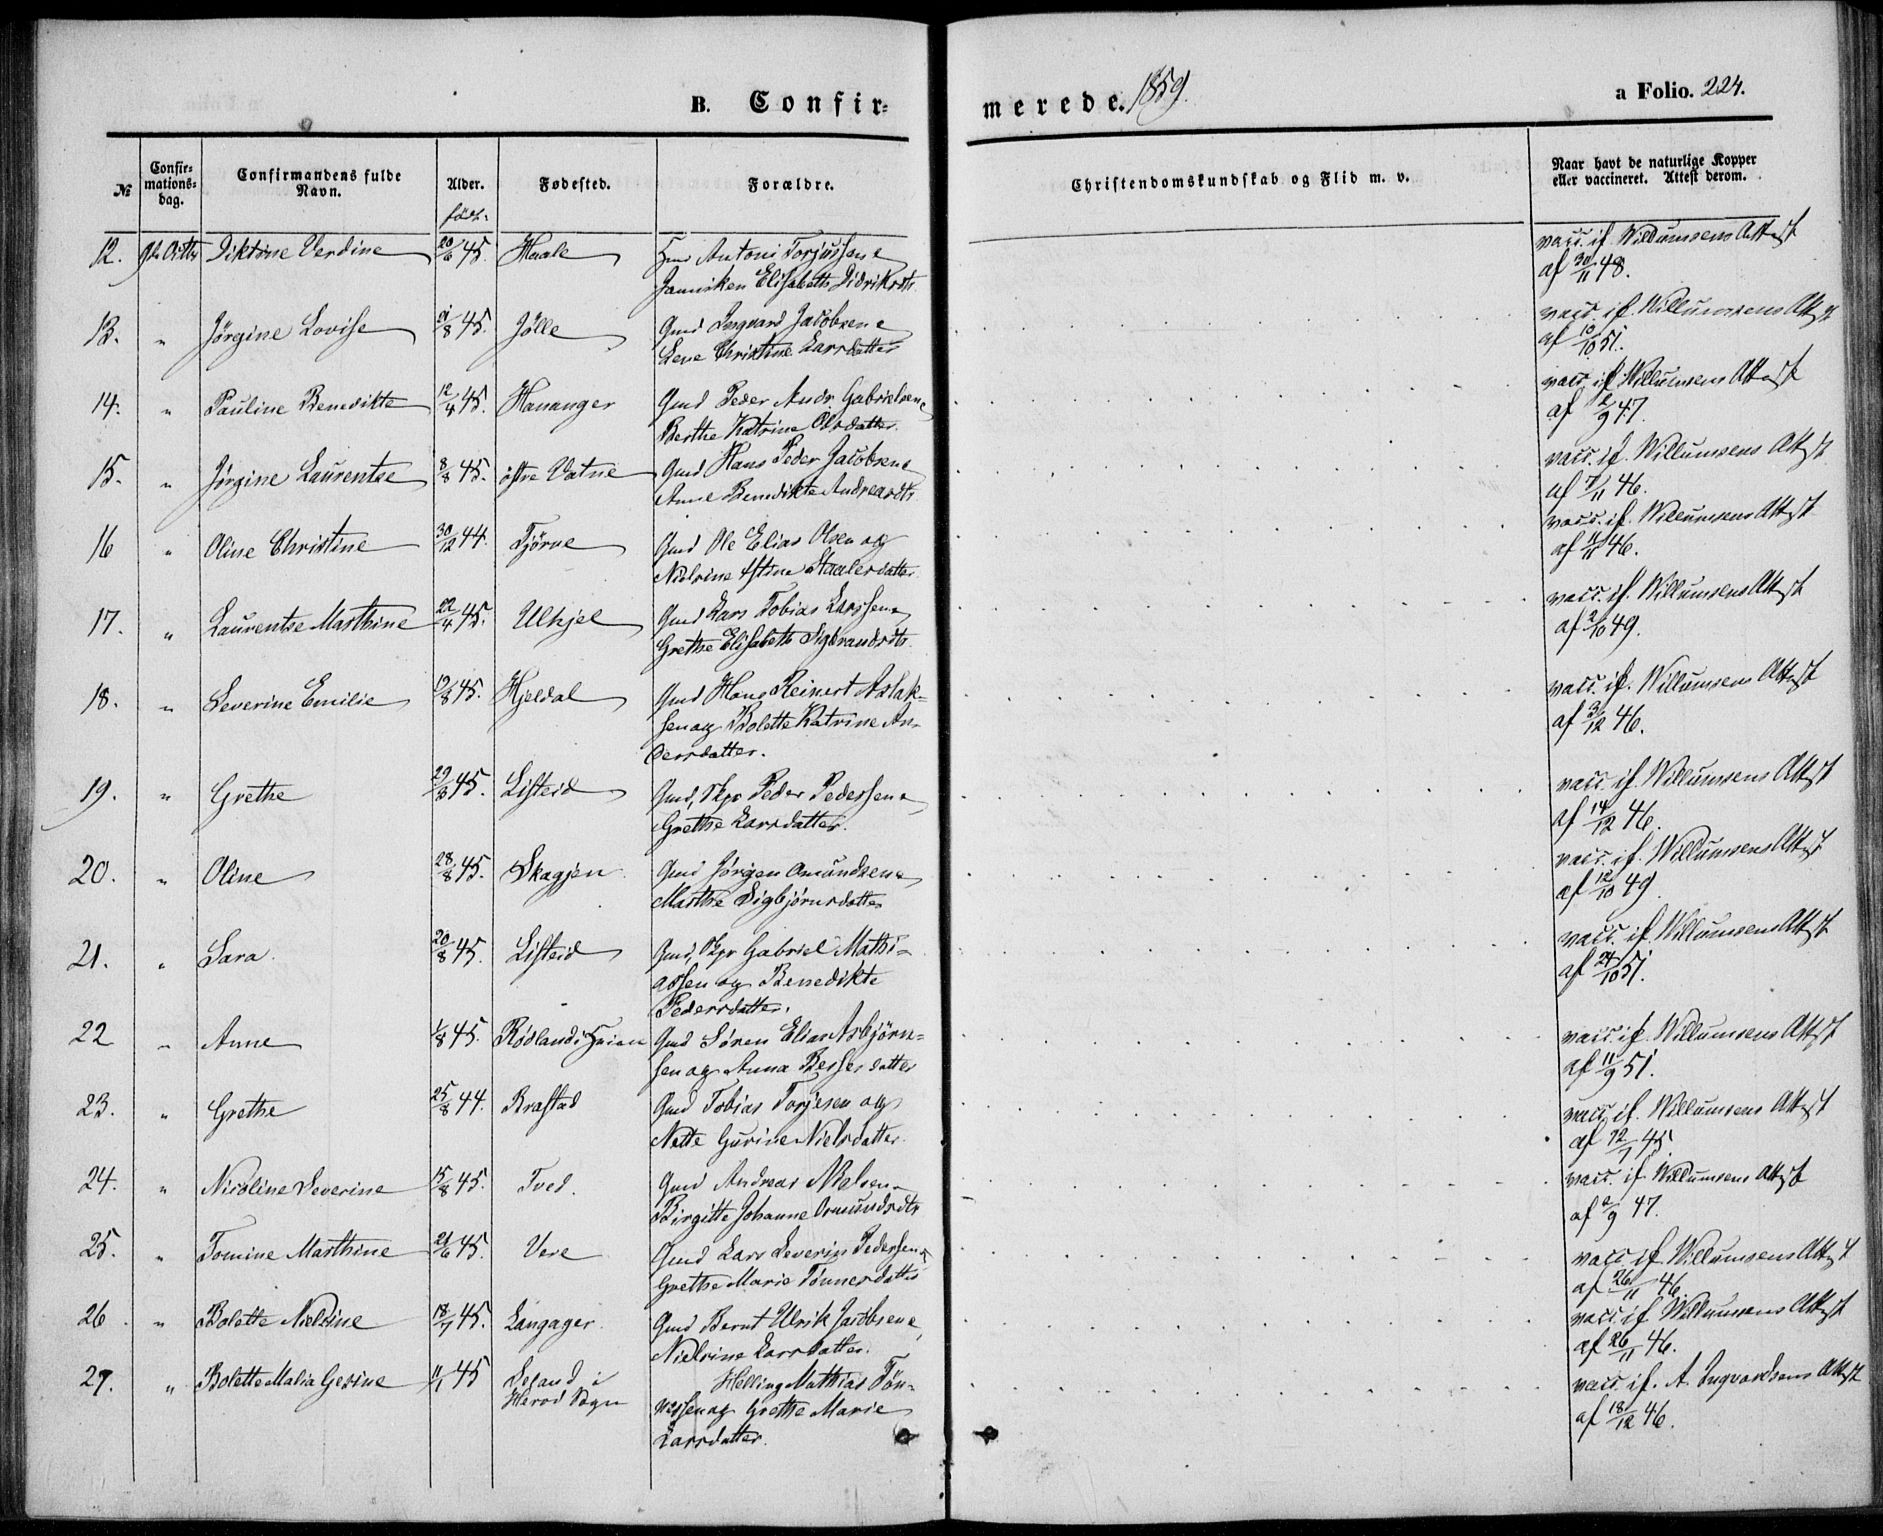 B. Confir-
merede. 1859.
a Folio. 224.
№
Confir-
mations-
dag.
Confirmandens fulde
Navn.
Alder.
født.
Fødested.
Forældre.
Christendomskundskab og Flid m. v.
Naar havt de naturlige Kopper
eller vaccineret. Attest derom.
12. Verdine 20/6 45. Antoni Torjussen
Elisabeth Didriksdtr
vacc. if. Willumsens Attest
af 30/11 48.
13. " Jørgine Lovise 21/8 45. Jølle Gmd Ingvard Jacobsen
Lene Christine Larsdatter
vacc. if. Willumsens Attest
af 10/10 51.
14. " Pauline Benedikte 12/4 45. Hananger Gmd Peder Andr. Gabrielsen
Berthe Katrine Olsdatter.
vacc. if. Willumsens Attest
af 2/9 47.
15. " Jørgine Laurentse 8/8 45. østre Vatne Gmd Hans Peder Jacobsen
Anne Benedikte Andreasdtr
vacc. if. Willumsens Attest
af 7/11 46.
16 " Oline Christine 30/12 44. Tjørve Gmd Ole Elias Olsen og
Nielsine Stine Staalesdatter
vacc. if. Willumsens Attest
af 11/11 46.
17. " Laurentse Marthine 22/4 45. Ulhjel Gmd Lars Tobias Larssen
Grethe Elisabeth Sigbrandsdtr.
vacc. if. Willumsens Attest
af 2/10 49.
18. " Severine Emilie 45. Hjeldal Gmd Hans Reinert Aslak-
sen og Bolette Katrine An-
dersdatter.
vacc. if. Willumsens Attest
af 3/12 46.
19. " Grethe 29/8 45. Listeid Gmd, Skpr Peder Pedersen
Grethe Larsdatter.
vacc. if. Willumsens Attest
af 14/12 46.
20. " Oline 28/8 45. Skagjen Gmd Jørgen Omundsen
Marthe Sigbjørnsdatter
vacc. if. Willumsens Attest
af 12/10 49
21. " Sara. 20/8 45. Listeid Gmd, Skpr Gabriel Mathi-
assen og Benedikte
Pedersdatter.
vacc. if. Willumsens Attest
af 24/10 51.
22 " Anne 1/8 45. Rødlands Gmd Søren Elias Asbjørn-
sen og Anna datter
vacc. if. Willumsens Attest
af 11/9 51.
23. " Grethe 25/8 44. Brastad Gmd Tobias Torjesen og
Nette Gurine Nielsdatter.
vacc. if. Willumsens Attest
af 12/7 45.
24. " Nicoline Severine 15/8 45. Tved. Gmd Andreas
Birgitte Johanne Omundsdtr
vacc. if. Willumsens Attest
af 2/9 47.
25. " Tomine Marthine 21/6 45. Vere Gmd Lars Severin Pedersen
Grethe Marie Tønnesdatter
vacc. if. Willumsens Attest
af 26/11 46.
26. " Bolette Nielsine 18/7 45. Langager. Gmd Bernt Ulrik Jacobsen
Nielsine Larsdatter.
vacc. if. Willumsens Attest
af 26/11 46.
27. " Bolette Malia Gesine 45 i
Herød Sogn
Mathias Tøn-
nessen og Grethe Marie
Larsdatter.
vacc. if. A. Ingvaldsens Attest
af 18/12 46.